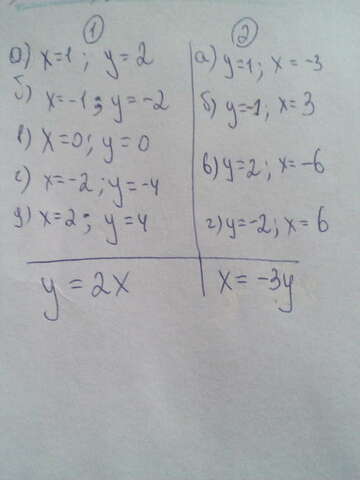 1
а) x=1; y=2
б) x=-1; y=-2
в) x=0; y=0
г) x=-2; y=-4
д) x=2; y=4
y=2x
2
а) y=1; x=-3
б) y=-1; x=3
в) y=2; x=-6
г) y=-2; x=6
x=-3y